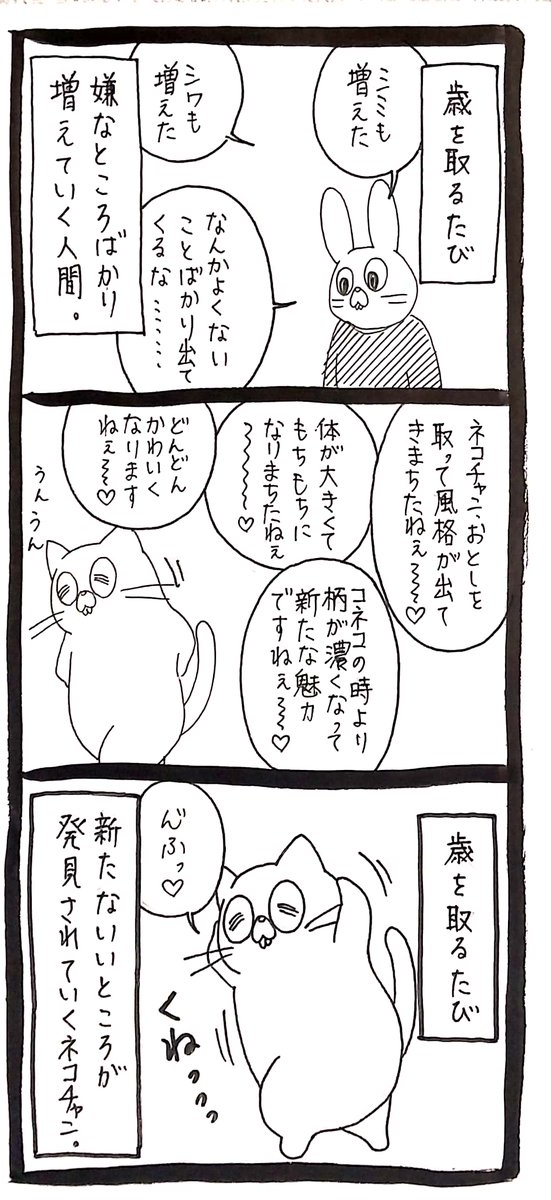 歳を取るたび
シミも
増えた
シワも
増えた
なんかよくない
ことばかり出て
くるな…………
嫌なところばかり
増えていく人間。
ネコチャン、おとしを
取って風格が出て
きまちたねぇ〜〜♡
体が大きくて
もちもちに
なりまちたねぇ
〜〜〜〜♡
コネコの時より
柄が濃くなって
新たな魅力
ですねぇ〜〜♡
どんどん
かわいく
なります
ねぇ〜〜♡
うんうん
歳を取るたび
んふっ♡
くねっっっ
新たないいところが
発見されていくネコチャン。